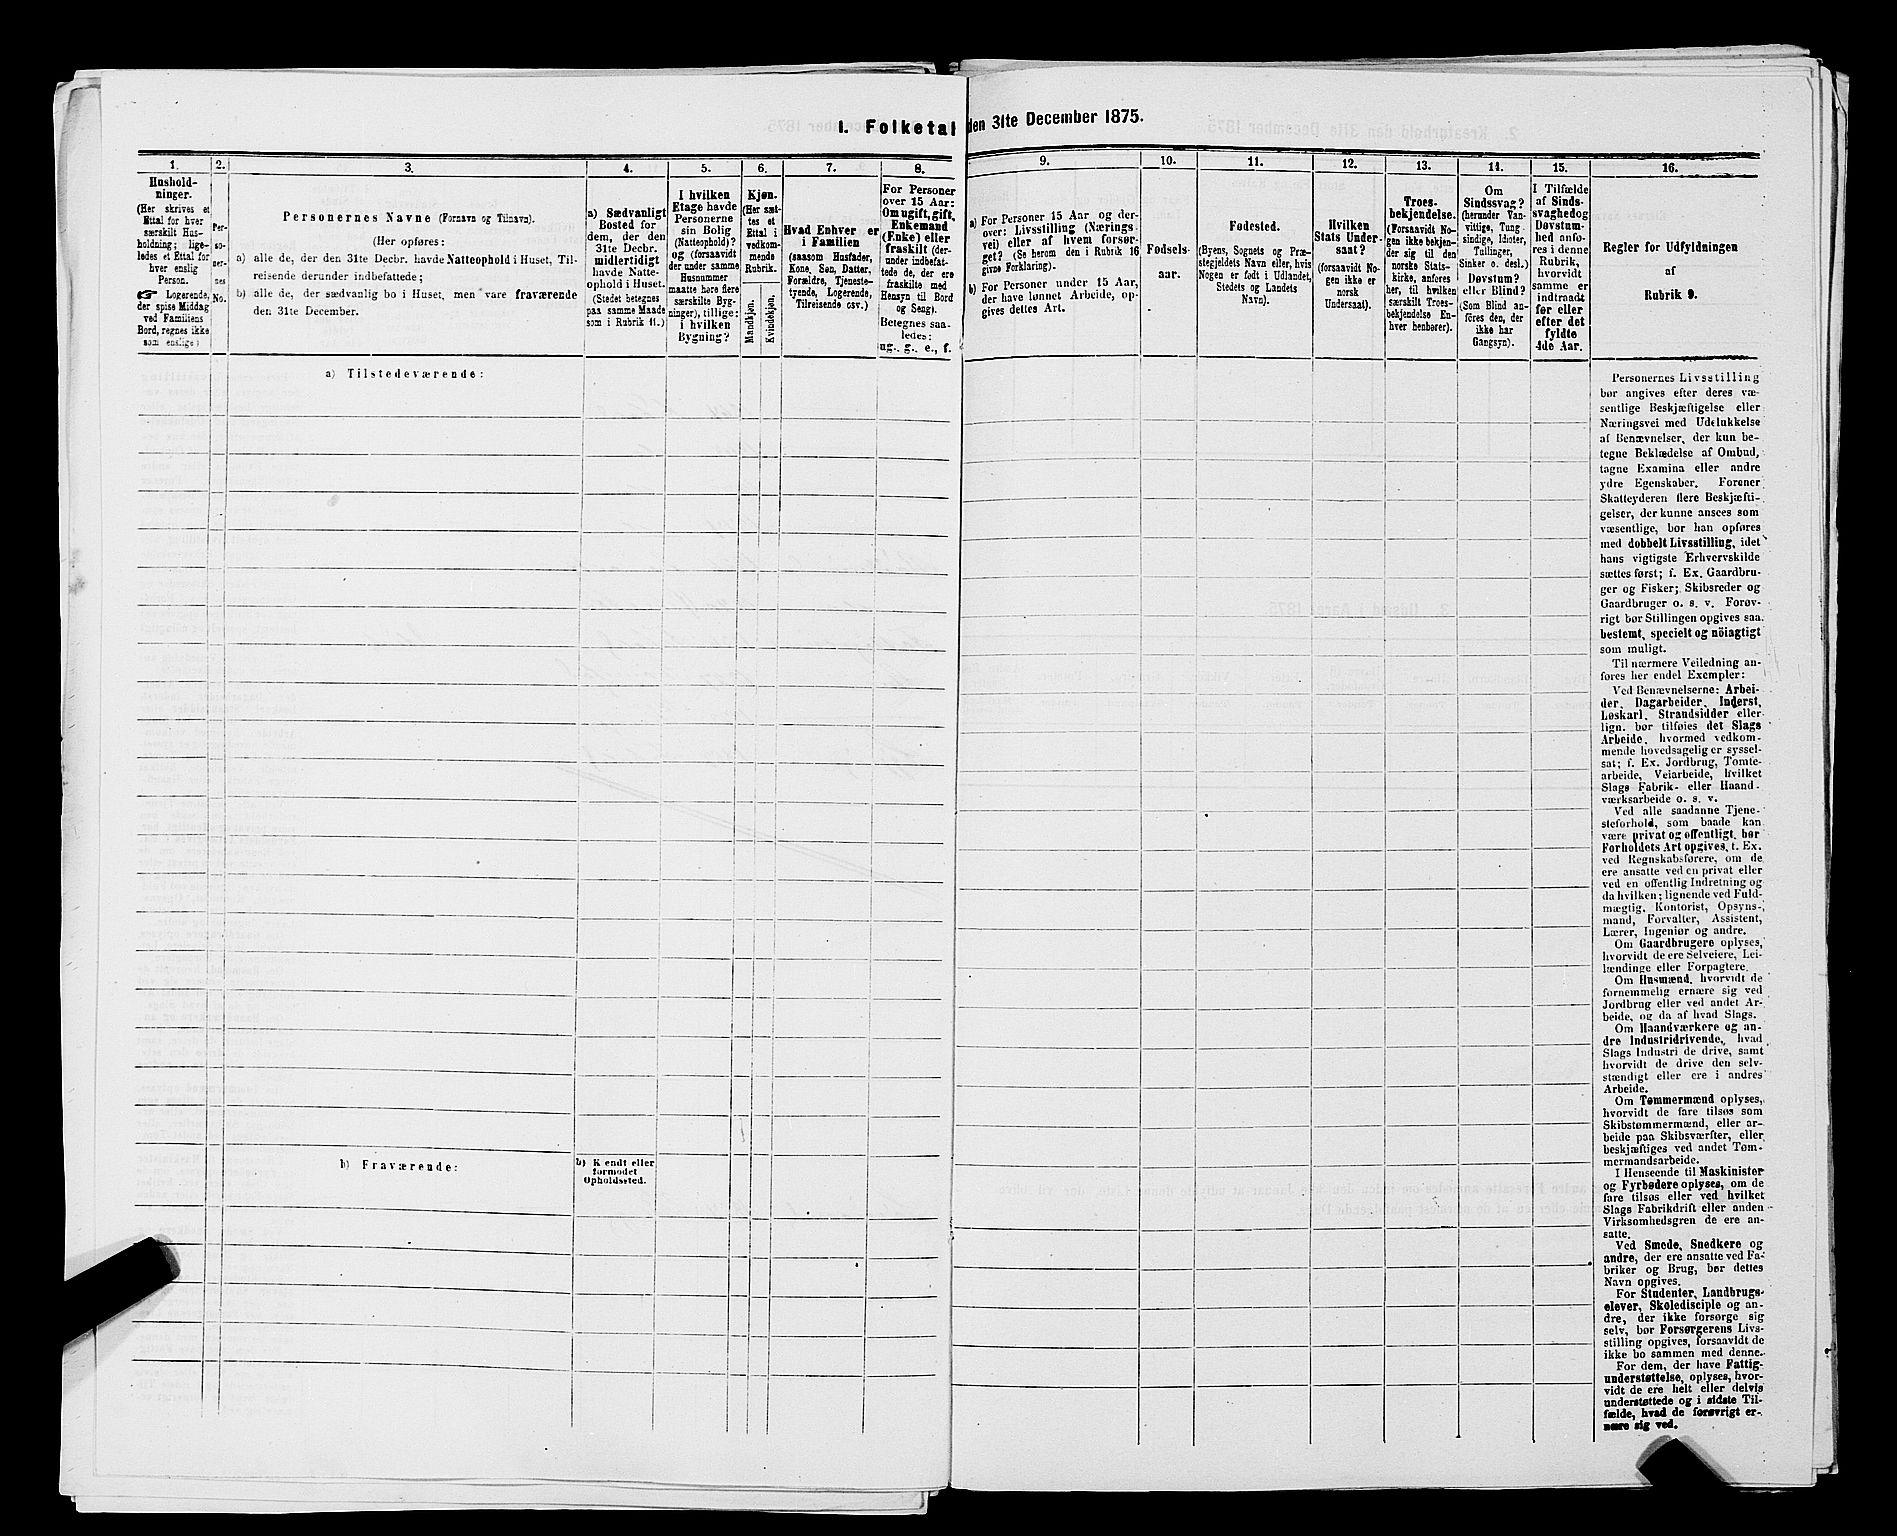 I. Folketal den 31te December 1875.
1.
Hushold-
ninger.
(Her skrives et
Ettal for hver
særskilt Hus-
holdning; lige-
ledes et Ettal for
hver enslig
Person.
☞ Logerende,
der spise Middag
ved Familiens
Bord, regnes ikke
som enslige)
2.
Per-
so-
ner-
nes
No.
3.
Personernes Navne (Fornavn og Tilnavn).
(Her opføres:
a) alle de, der den 31te Decbr. havde Natteophold i Huset, Til-
reisende derunder indbefattede;
b) alle de, der sædvanlig bo i Huset, men vare fraværende
den 31te December.
4.
a) Sædvanligt
Bosted for
dem, der den
31te Decbr.
midlertidigt
havde Natte-
ophold i Huset.
(Stedet betegnes
paa samme Maade
som i Rubrik 11.)
5.
I hvilken
Etage havde
Personerne
sin Bolig
(Natteophold)?
og (forsaavidt
der under samme
Husnummer
maatte høre flere
særskilte Byg-
ninger), tillige:
i hvilken
Bygning?
6.
Kjøn.
(Her sæt-
tes et
Ettal i
vedkom-
mende
Rubrik.
Mandkjøn.
Kvindekjøn.
7.
Hvad Enhver er
i Familien
(saasom Husfader,
Kone, Søn, Datter,
Forældre, Tjeneste-
tyende, Logerende,
Tilreisende osv.)
8.
For Personer
over 15 Aar:
Om ugift, gift,
Enkemand
(Enke) eller
fraskilt (der-
under indbefat-
tede de, der ere
fraskilte med
Hensyn til Bord
og Seng).
Betegnes saa-
ledes:
ug., g., e., f.
9.
a) For Personer 15 Aar og der-
over: Livsstilling (Nærings-
vei) eller af hvem forsør-
get? (Se herom den i Rubrik 16
givne Forklaring).
b) For Personer under 15 Aar,
der have lønnet Arbeide, op-
gives dettes Art.
10.
Fødsels-
aar.
11.
Fødested.
(Byens, Sognets og Præ-
stegjeldets Navn eller, hvis
Nogen er født i Udlandet,
Stedets og Landets
Navn).
12.
Hvilken
Stats Under-
saat?
(forsaavidt No-
gen ikke er
norsk
Undersaat).
13.
Troes-
bekjendelse.
(Forsaavidt No-
gen ikke bekjen-
der sig til den
norske Stats-
kirke, anføres
her, til hvilken
særskilt Troes-
bekjendelse En-
hver henhører).
14.
Om
Sindssvag?
(herunder Van-
vittige, Tung-
sindige, Idioter,
Tullinger,
Sinker o. desl.)
Døvstum?
eller Blind?
(Som Blind an-
føres den, der
ikke har
Gangsyn).
15.
I Tilfælde
af Sinds-
svaghed og
Døvstum-
hed anfø-
res i denne
Rubrik,
hvorvidt
samme er
indtraadt
før eller
efter det
fyldte
4de Aar.
16.
Regler for Udfyldningen
af
Rubrik 9.
a) Tilstedeværende:
b) Fraværende:
b) Kendt eller
formodet
Opholdssted.
Personernes Livsstilling
bør angives efter deres væ-
sentlige Beskjæftigelse eller
Næringsvei med Udelukkelse
af Benævnelser, der kun be-
tegne Beklædelse af Ombud,
tagne Examina eller andre
ydre Egenskaber. Forener
Skatteyderen flere Beskjæfti-
gelser, der kunne ansees som
væsentlige, bør han opføres
med dobbelt Livsstilling, idet
hans vigtigste Erhvervskilde
sættes først; f. Ex. Gaardbru-
ger og Fisker; Skibsreder og
Gaardbruger o. s. v. Forøv-
rigt bør Stillingen opgives saa
bestemt, specielt og nöiagtigt
som muligt.
Til nærmere Veiledning an-
føres her endel Exempler:
Ved Benævnelserne: Arbei-
der, Dagarbeider, Inderst,
Løskarl, Strandsidder eller
lign. bør tilføies det Slags
Arbeide, hvormed vedkom-
mende hovedsagelig er syssel-
sat; f. Ex. Jordbrug, Tomte-
arbeide, Veiarbeide, hvilket
Slags Fabrik- eller Haand-
værksarbeide o. s. v.
Ved alle saadanne Tjene-
steforhold, som baade kan
være privat og offentligt, bør
Forholdets Art opgives, f. Ex.
ved Regnskabsførere, om de
ere ansatte ved en privat eller
ved en offentlig Indretning og
da hvilken; lignende ved Fuld-
mægtig, Kontorist, Opsyns-
mand, Forvalter, Assistent,
Lærer, Ingeniør og andre.
Om Gaardbrugere oplyses,
hvorvidt de ere Selveiere, Lei-
lændinge eller Forpagtere.
Om Husmænd, hvorvidt de
fornemmelig ernære sig ved
Jordbrug eller ved andet Ar-
beide, og da af hvad Slags.
Om Haandværkere og an-
dre Industridrivende, hvad
Slags Industri de drive, samt
hvorvidt de drive den selv-
stændigt eller ere i andres
Arbeide.
Om Tømmermænd oplyses,
hvorvidt de fare tilsøs som
Skibstømmermænd, eller ar-
beide paa Skibsværfter, eller
beskjæftiges ved andet Tøm-
mermandsarbeide.
I Henseende til Maskinister
og Fyrbødere oplyses, om de
fare tilsøs eller ved hvilket
Slags Fabrikdrift eller anden
Virksomhedsgren de ere an-
satte.
Ved Smede, Snedkere og
andre, der ere ansatte ved Fa-
briker og Brug, bør dettes
Navn opgives.
For Studenter, Landbrugs-
elever, Skoledisciple og an-
dre, der ikke forsørge sig
selv, bør Forsørgerens Livs-
stilling opgives, forsaavidt de
ikke bo sammen med denne.
For dem, der have Fattig-
understøttelse, oplyses, hvor-
vidt de ere helt eller delvis
understøttede og i sidste Til-
fælde, hvad de forøvrigt er-
nære sig ved.